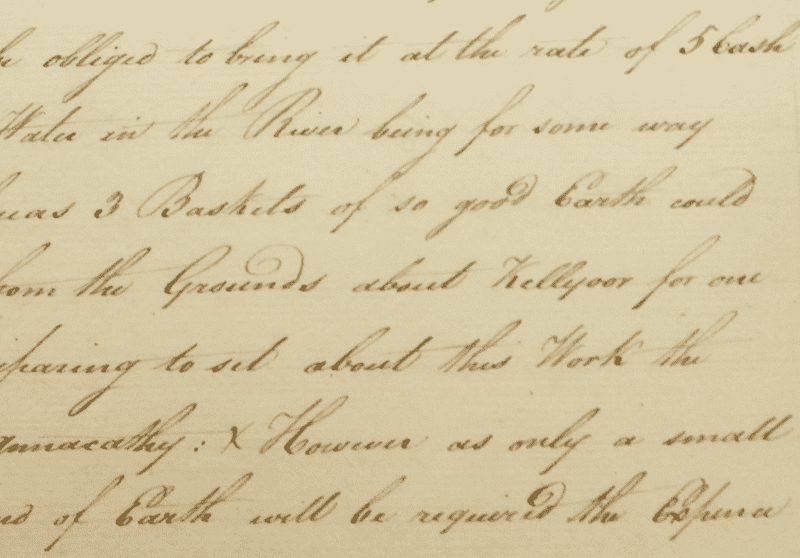 obliged to bring it at the rate of 5 Cash
Water in the River being for some way
3 Baskets of so good Earth could
the Grounds about Kellyoor for one
to set about this Work the
: X However as only a small
of Earth will be required the Expence